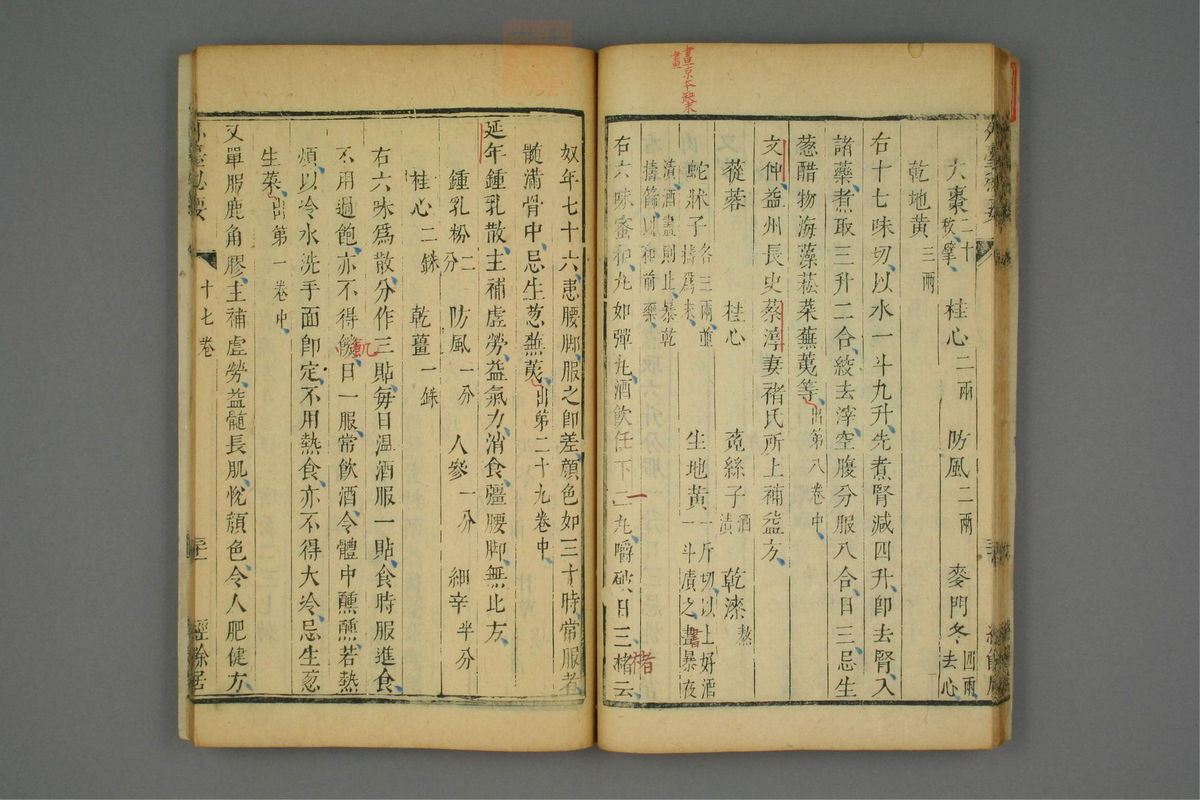 大棗二十枚擘　桂心二兩　防風二兩　麥門冬四兩去心
乾地黃三兩
右十七味切以水一斗九升先煮腎減四升卽去腎入
諸藥煮取三升二合絞去滓空腹分服八合日三忌生
葱醋物海藻菘菜蕪荑等出第八卷中
文仲益州長史蔡淳妻褚氏所上補益方
蓯蓉　桂心　菟絲子酒漬　乾漆熬
蛇牀子各三兩　生地黃一斤切以上好酒一斗漬之晝暴夜
漬酒盡則止暴乾
擣篩以和前藥
右六味蜜和丸如彈丸酒飲任下二丸嚼破日三楮云
一
褚
晝京本
晝
奴年七十六患腰脚服之卽差顔色如三十時常服者
髓滿骨中忌生葱蕪荑出第二十九卷中
延年鍾乳散主補虛勞益氣力消食彊腰脚無比方
鍾乳粉二分　防風一分　人參一分　細辛半分
桂心二銖　乾薑一銖
右六味爲散分作三貼每日温酒服一貼食時服進食
不用過飽亦不得饑日一服常飲酒令體中醺醺若熱
飢
煩以冷水洗手面卽定不用熱食亦不得大冷忌生葱
生菜出第一卷中
又單服鹿角膠主補虛勞益髓長肌悅顔色令人肥健方
外臺祕要　十七卷　經餘居